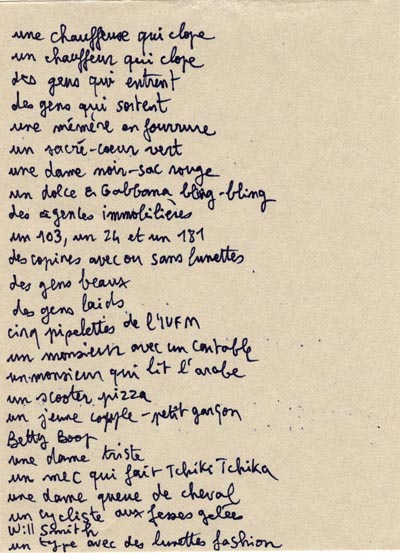 une chauffeuse qui clope
un chauffeur qui clope
des gens qui entrent
des gens qui sortent
une mémère en fourrure
un sacré-coeur vert
une dame noir-sac rouge
un dolce & Gabbana bling-bling
des agentes immobilières
un 103, un 24 et un 181
des copines avec ou sans lunettes
des gens beaux
des gens laids
cinq pipelettes de l'IUFM
un monsieur avec un cartable
un monsieur qui lit l'arabe
un scooter pizza
un jeune couple - petit garçon
Betty Boop
une dame triste
un mec qui fait Tchiki Tchika
une dame queue de cheval
un cycliste aux fesses gelées
Will Smith
un type avec des lunettes fashion